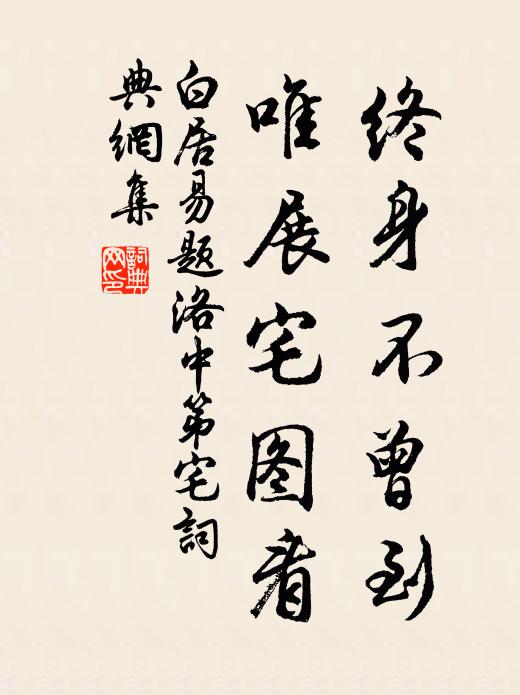 终身不曾到
唯展宅图看
白居易题洛中第宅詞
典網集
詞典网印